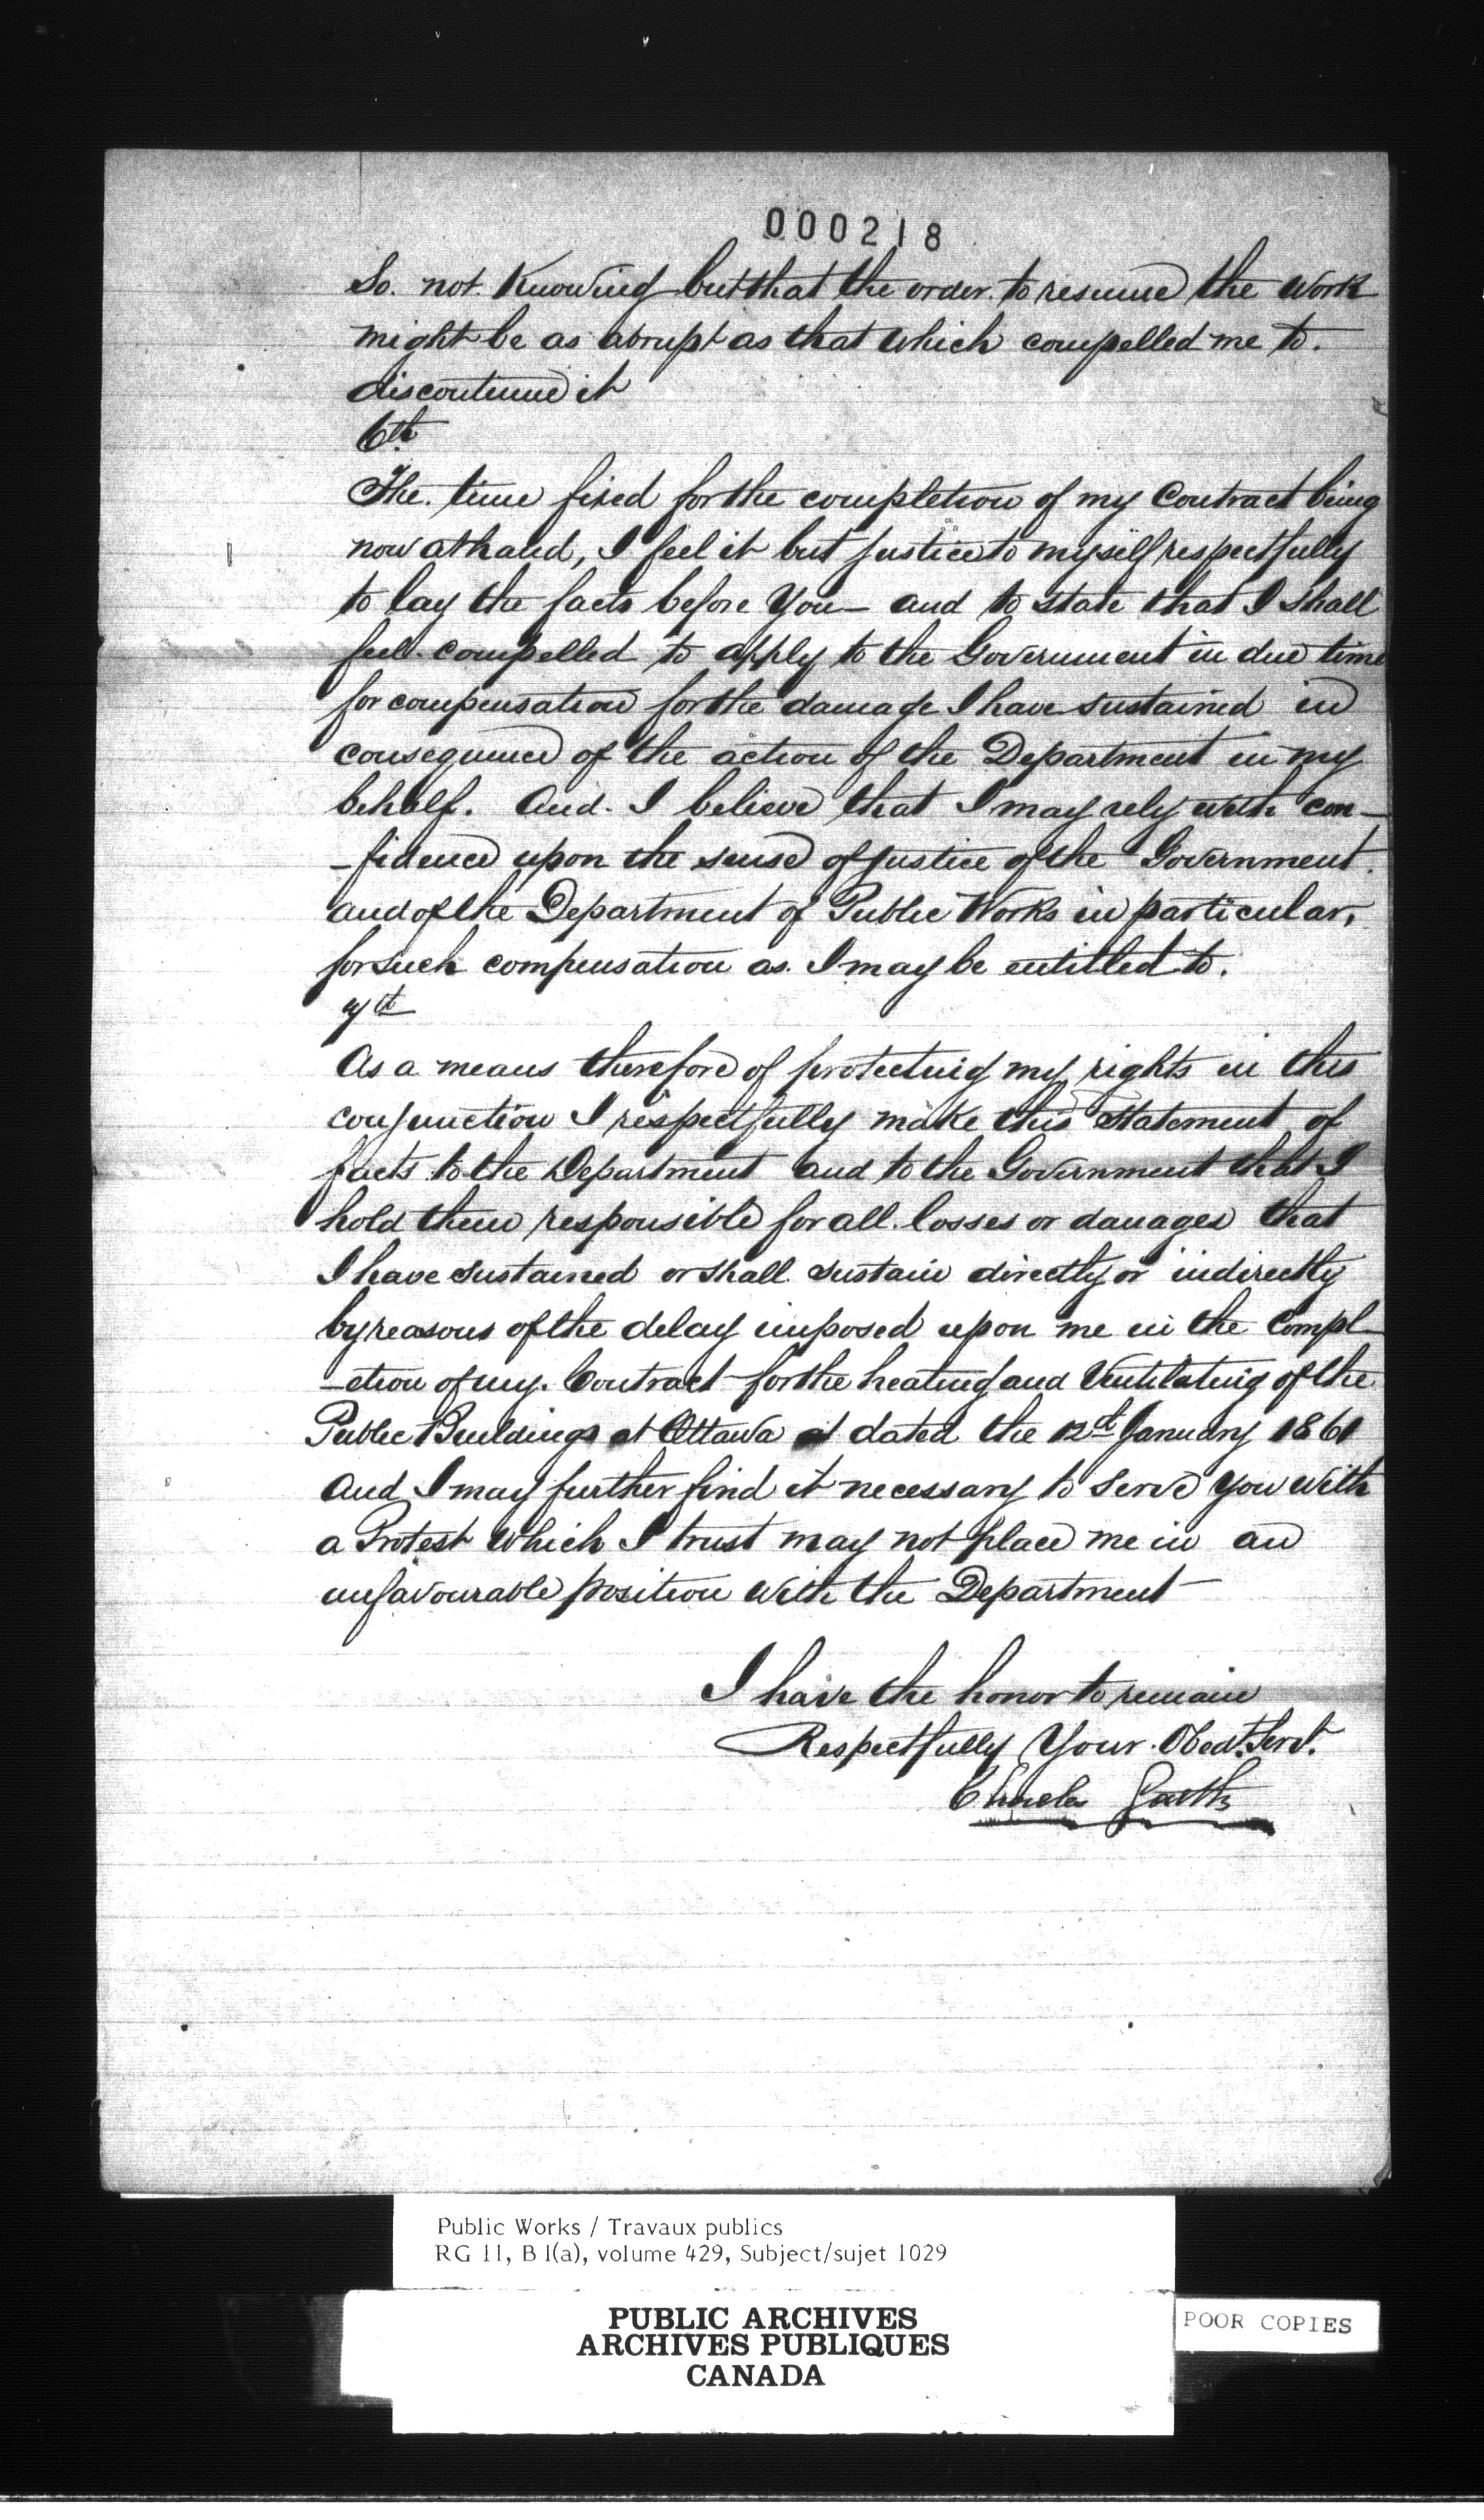 000218
So. not Knowing but that the order to resume the Work
might be as abrupt as that which compelled me to.
discontinue it
6th
The time fixed for the completion of my Contract being
now at hand, I feel it but justice to myself respectfully
to lay the facts before You— and to state that I shall
feel compelled to apply to the Government in due time
for compensation for the damage I have sustained in
consequence of the action of the Department in my
behalf. And I believe that I may rely with con-
-fidence upon the sense of justice of the Government.
and of the Department of Public Works in particular,
for such compensation as I may be entitled to.
7th
As a means therefore of protecting my rights in this
conjunction I respectfully make this Statement of
facts to the Department and to the Government that I
hold them responsible for all losses or damages that
I have sustained or shall sustain directly or indirectly
by reasons of the delay imposed upon me in the Compl-
-etion of my Contract for the heating and Ventilating of the
Public Buildings at Ottawa dated the 12th January 1861
And I may further find it necessary to Serve You with
a Protest Which I trust may not place me in an
unfavourable position with the Department—
I have the honor to remain
Respectfully Your Obedt. Servt.
Charles Garth
Public Works / Travaux publics
RG 11, B 1(a), volume 429, Subject/sujet 1029
PUBLIC ARCHIVES
ARCHIVES PUBLIQUES
CANADA
POOR COPIES